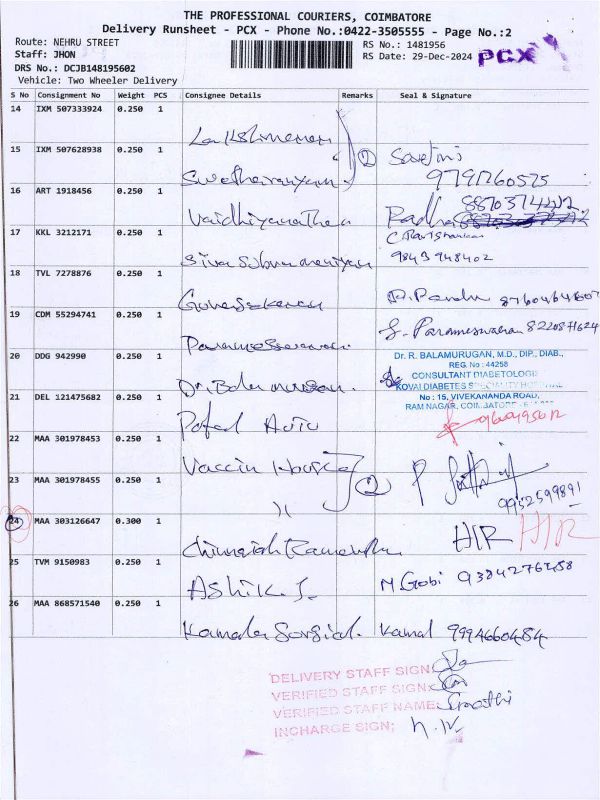 THE PROFESSIONAL COURIERS, COIMBATORE
Delivery Runsheet - PCX - Phone No.:0422-3505555 - Page No.:2
Route: NEHRU STREET
Staff: JHON
DRS No.: DCJB148195602
Vehicle: Two Wheeler Delivery
RS No.: 1481956
RS Date: 29-Dec-2024
PCX
S No Consignment No Weight PCS Consignee Details Remarks Seal & Signature
14 IXM 507333924 0.250 1
15 IXM 507628938 0.250 1 2
9791260575
16 ART 1918456 0.250 1 Vaidhiyanathan Radha 8870374412
17 KKL 3212171 0.250 1 Siva Subramaniyan C. Ravi Shankar
9843948402
18 TVL 7278876 0.250 1 Gunasekaran
19 CDM 55294741 0.250 1 S. Parameswaran
20 DDG 942990 0.250 1 Dr. Balamurugan.
Dr. R. BALAMURUGAN, M.D., DIP., DIAB.,
REG No : 44258
CONSULTANT DIABETOLOGIST
KOVAI DIABETES SPECIALITY HOSPITAL
No : 15, VIVEKANANDA ROAD,
RAM NAGAR, COIMBATORE
21 DEL 121475682 0.250 1 Patel Auto
22 MAA 301978453 0.250 1 Vaccin House 2
23 MAA 301978455 0.250 1 )(
9932599891
24 MAA 303126647 0.300 1 H/R H/R
25 TVM 9150983 0.250 1 Ashik. S. M. Gobi 9384276458
26 MAA 868571540 0.250 1 Kamala Surgical. Kamal 9994660484
DELIVERY STAFF SIGN:
VERIFIED STAFF SIGN:
VERIFIED STAFF NAME:
INCHARGE SIGN;